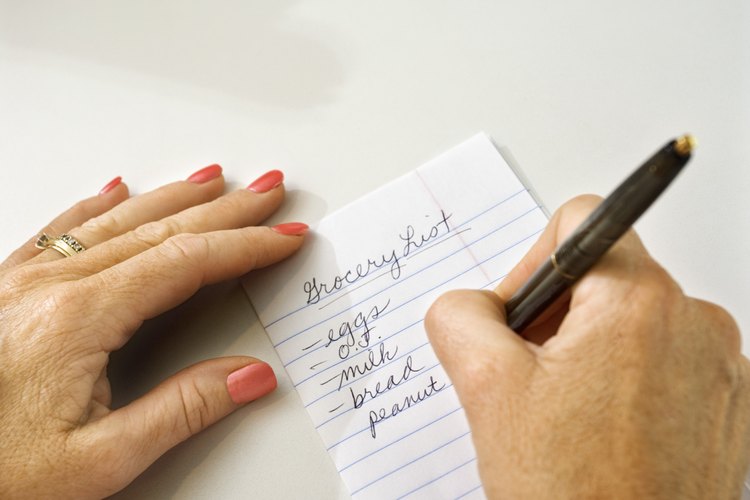 Grocery List
- eggs
- O.J.
- milk
- bread
peanut